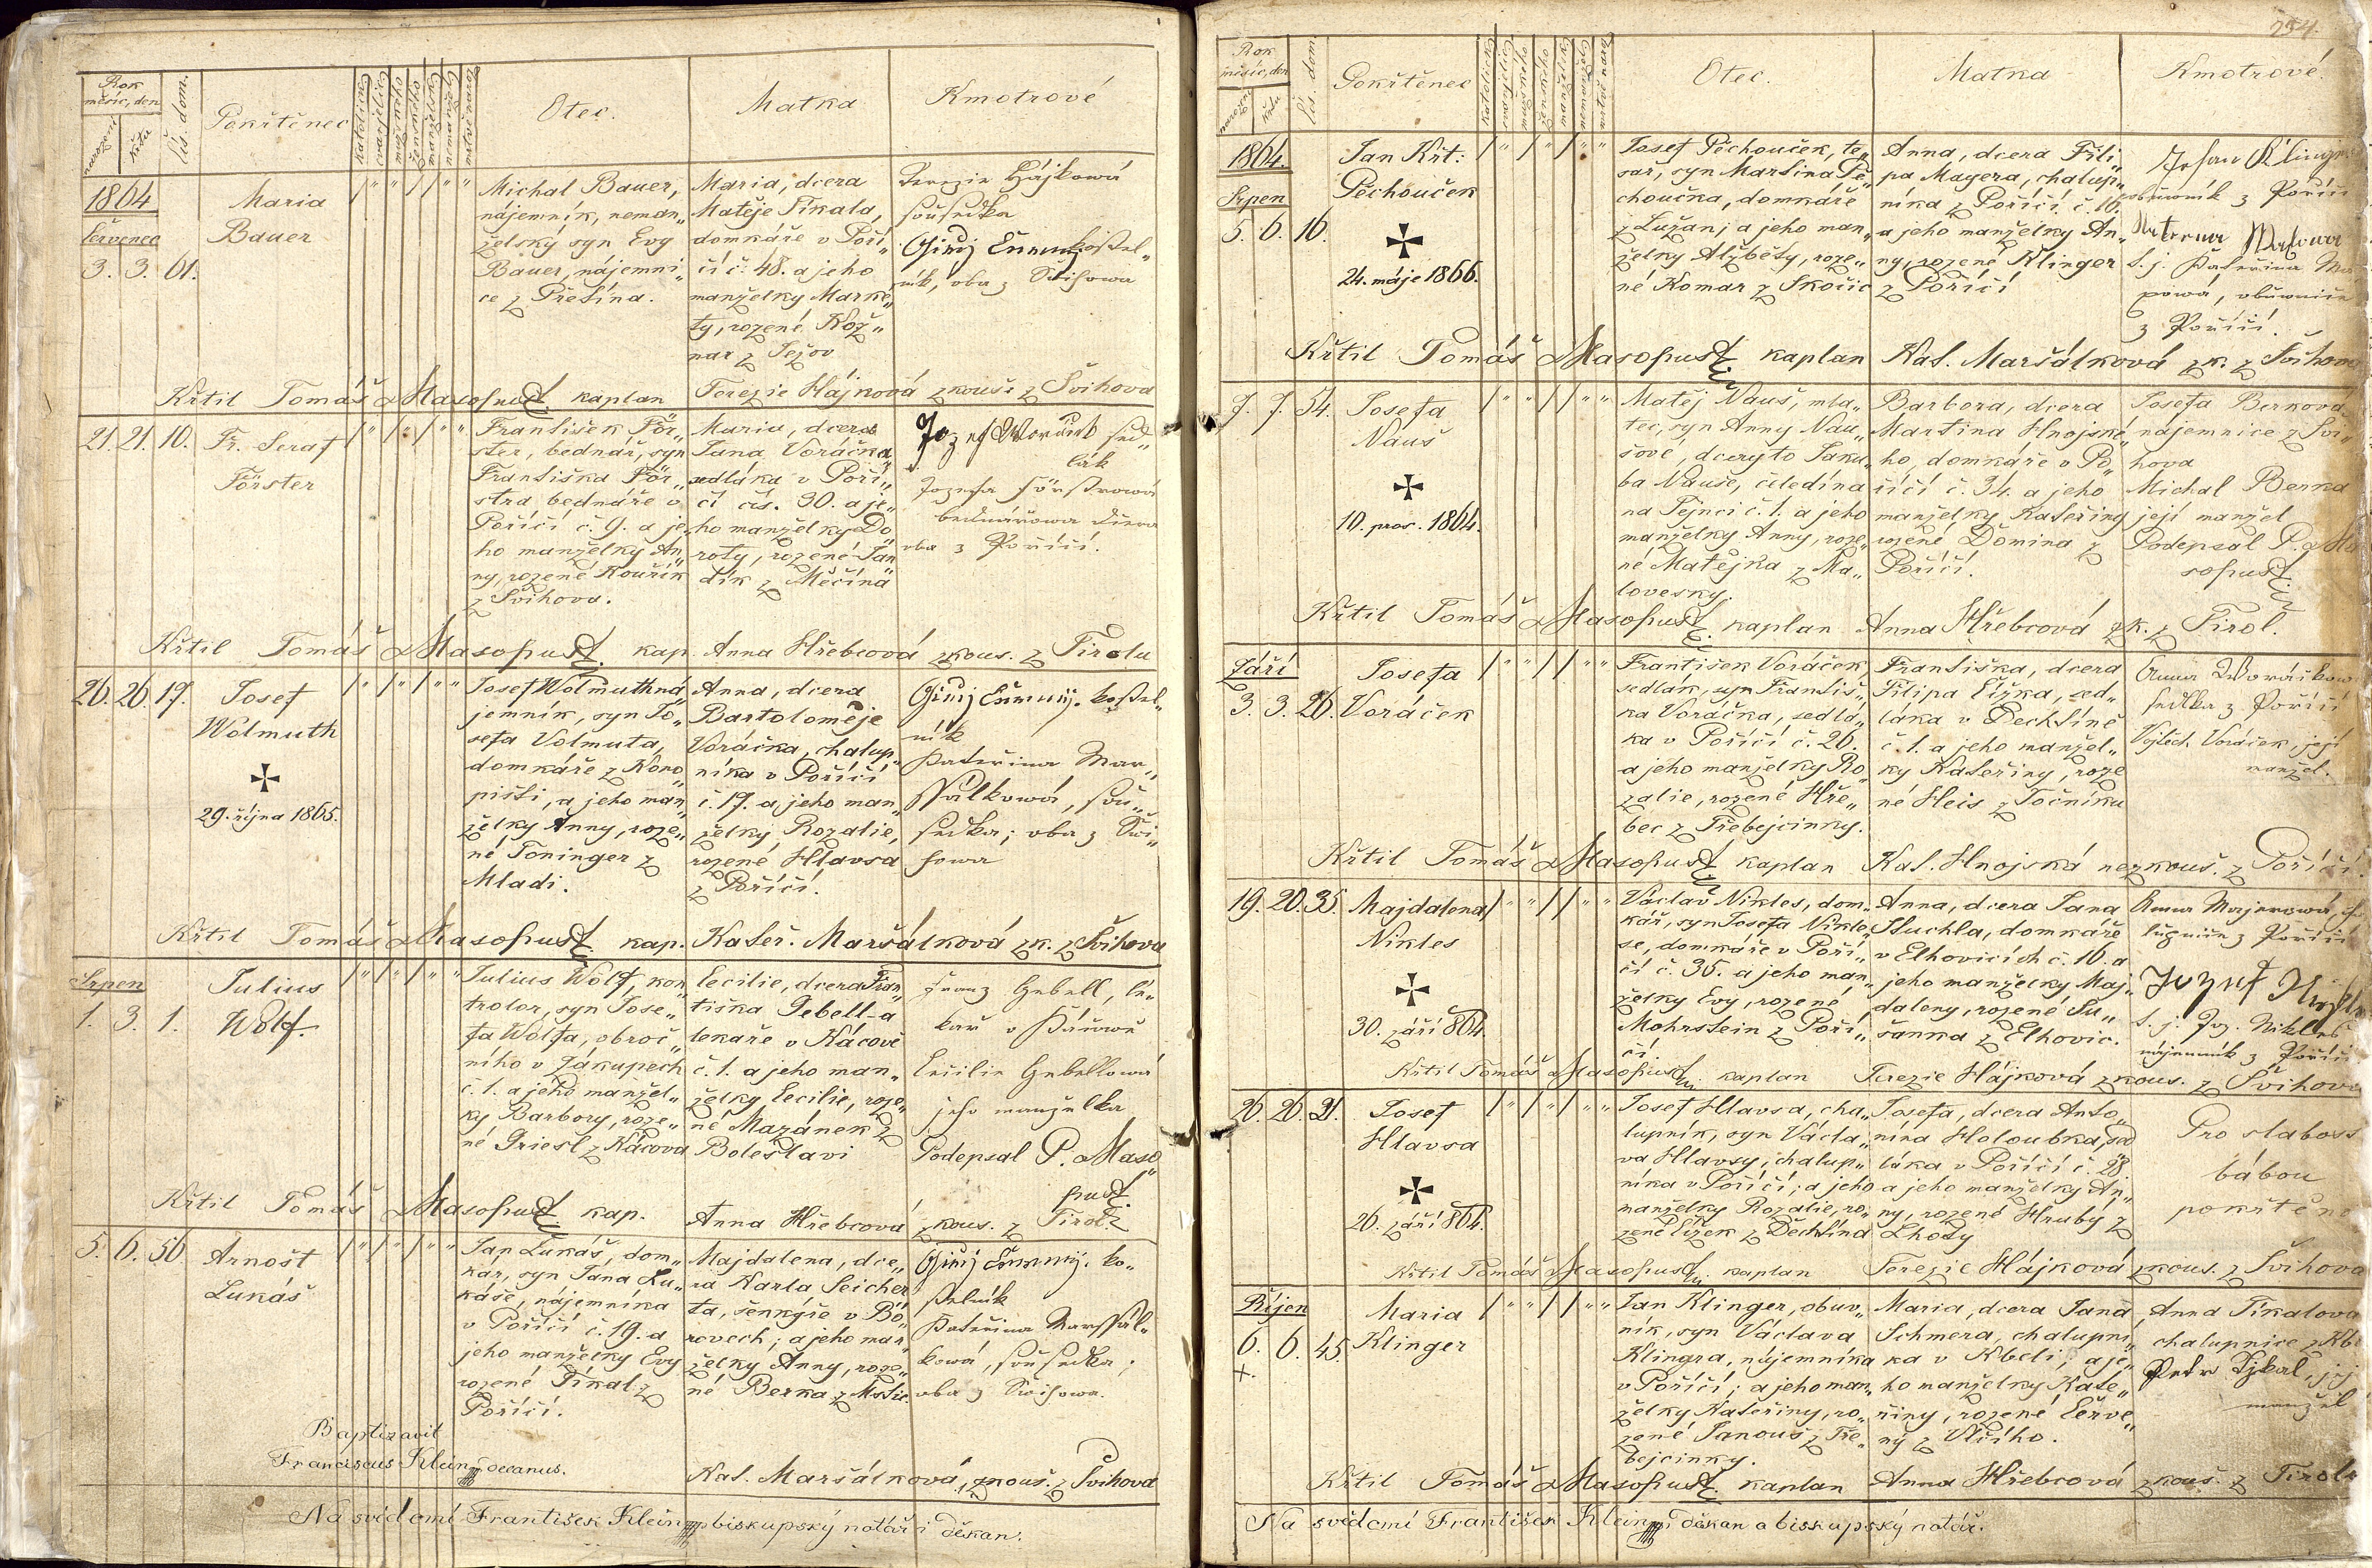 Rok
měsíc, den
narození
křtu
čís. dom.
Pokřtěnec
Otec.
Matka
Kmotrové
1864
Července
3. 3. 61.
Maria
Bauer
Michal Bauer,
nájemník, neman„
želský syn Evy
Bauer, nájemni„
ce z Přetína.
Maria, dcera
Matěje Tikala,
domkáře v Poří„
čí č. 48. a jeho
manželky Marke„
ty, rozené Kož„
nar z Ježov
Terezie Hájkowá
sousedka
kostel„
ník, oba z Swihowa
Křtil Tomáš Masopust. kaplan
Terezie Hájková zkouš: z Švihova
21. 21. 10.
Fr. Seraf
Förster
František För„
ster, bednář, syn
Františka För„
stra bednáře v
Poříčí č. 9. a je„
ho manželky An„
ny, rozené Kouřík
z Švihova.
Maria, dcera
Jana Voráčka,
sedláka v Poří„
čí čís. 30. a je„
ho manželky Do„
roty, rozené Jan„
dík z Měčína
Jozef Woráček sed„
lák
Jozefa Förstrowá
bednářowa dcera
oba z Poříčí.
Křtil Tomáš Masopust. kap.
Anna Hřebcová zkouš. z Tirolu
26. 26. 17.
Josef
Wolmuth
29. října 1865.
Josef Wolmuth ná„
jemník, syn Jo„
sefa Volmuta,
domkáře z Kono„
pišti, a jeho man„
želky Anny, roze„
né Toninger z
Mladi.
Anna, dcera
Bartoloměje
Voráčka, chalup„
níka v Poříčí
č. 17. a jeho man„
želky Rozalie,
rozené Hlavsa
z Poříčí.
kostel„
ník
Kateřina Mar„
ssálkowá, sou„
sedka; oba z Swi„
howa
Křtil Tomáš Masopust. kap.
Kateř. Maršálková zk. z Švihova
Srpen
1. 3. 1.
Julius
Wolf.
Julius Wolf, kon„
trolor, syn Jose„
fa Wolfa, obroč„
ního v Zákupech
č. 1. a jeho manžel„
ky Barbory, roze„
né Griesl z Kácova
Cecilie, dcera Fran„
tiška Gebell-a
lekaře v Kácově
č. 1. a jeho man„
želky Cecilie, roze„
né Mazánek z
Boleslavi
Franz Gebell, lé„
kař v Kácowě
Cecilie Gebellowá
jeho manželka
Podepsal P. Maso„
pust.
Křtil Tomáš Masopust. kap.
Anna Hřebcová zkous. z Tirol.
5. 6. 56
Arnošt
Lukáš
Jan Lukáš, dom„
kář, syn Jána Lu„
káše, nájemníka
v Poříčí č. 19. a
jeho manželky Evy
rozené Tikal z
Poříčí.
Majdalena, dce„
ra Karla Seicher„
ta, šenkýře v Bo„
rovech; a jeho man„
želky Anny, roze„
né Berka z Mstic.
ko„
stelník
Kateřina Marssál„
kowá, sousedka;
oba z Swihowa.
Baptizavit
Franciscus Klein decanus.
Kat. Maršálková, zkouš. z Švihova
Na svědomí František Klein biskupský notář i děkan.
254.
Rok
měsíc, den
narození
křtu
čís. dom.
Pokřtěnec
Otec.
Matka
Kmotrové.
1864.
Srpen
5. 6. 16.
Jan Křt:
Pěchouček
24. máje 1866.
Josef Pěchouček, te„
sař, syn Martina Pě„
choučka, domkáře
z Lužan; a jeho man„
želky Alžběty, roze„
né Komar z Skočic
Anna, dcera Fili„
pa Mayera, chalup„
níka z Poříčí č. 16.
a jeho manželky An„
ny, rozené Klinger
z Poříčí
Johan Klinger
obuwník z Poříčí
t. j. Kateřina Ma„
powá, obuwnice
z Poříčí.
Křtil Tomáš Masopust. kaplan
Kat. Maršálková zk. z Švihova
7. 7. 54.
Josefa
Nauš
10. pros. 1864.
Matěj Nauš, mla„
tec, syn Anny Nau„
šové, dcery to Jaku„
ba Nauše, čeledína
na Tejnci č. 1. a jeho
manželky Anny, roze„
né Matějka z Ma„
lovesky.
Barbora, dcera
Martina Hnojské„
ho, domkáře v Po„
říčí č. 34. a jeho
manželky Kateřiny
rozené Domina z
Poříčí.
Josefa Berkova
nájemnice z Švi„
hova
Michal Berka
její manžel
Podepsal P. Ma
sopust.
Křtil Tomáš Masopust. kaplan
Anna Hřebcová zk. z Tirol.
Září
3. 3. 26.
Josefa
Voráček
František Voráček
sedlák, syn Františ„
ka Voráčka, sedlá„
ka v Poříčí č. 26.
a jeho manželky Ro„
zalie, rozené Hře„
bec z Třebejcinky.
Františka, dcera
Filipa Čížka, sed„
láka v Dechtíně
č. 1. a jeho manžel„
ky Kateřiny, roze„
né Heis z Točníku
Anna Woráčkow
sedlka z Poříčí
Vojtěch Voráček, její
manžel.
Křtil Tomáš Masopust. kaplan
Kat. Hnojská nezkouš. z Poříčí.
19. 20. 35.
Majdalena
Nikles
30. září 864.
Václav Nikles, dom„
kář, syn Josefa Nikle„
se, domkáře v Poří„
čí č. 35. a jeho man„
želky Evy, rozené
Mohrstein z Poří„
čí.
Anna, dcera Jana
Stuchla, domkáře
v Elhovicích č. 16. a
jeho manželky Maj„
daleny, rozené Su„
šanka z Elhovic.
Anna Majerowá, cha
lupnice z Poříčí
t. j. Joz. Nikles
nájemník z Poříčí
Křtil Tomáš Masopust. kaplan
Terezie Hájková zkous. z Švihova
26. 26. 21.
Josef
Hlavsa
26. září 864.
Josef Hlavsa, cha„
lupník, syn Václa„
va Hlavsy, chalup„
níka v Poříčí; a jeho
manželky Rozalie, ro„
zené Čížek z Dechtína
Josefa, dcera Anto„
nína Holoubka, sed
láka v Poříčí č. 28
a jeho manželky An„
ny, rozené Hrubý z
Lhoty
Pro slabost
bábou
pokřtěno
Křtil Tomáš Masopust. kaplan
Terezie Hájková zkous. z Švihova
Říjen
6. 6. 45.
+.
Maria
Klinger
Jan Klinger, obuv„
ník, syn Václava
Klingra, nájemníka
v Poříčí; a jeho man„
želky Kateřiny, ro„
zené Janouš z Tře„
bejcinky.
Maria, dcera Jana
Schmera, chalupní„
ka v Kbeli; a je„
ho manželky Kate„
řiny, rozené Červe„
ný z Vlčího.
Anna Tikalova
chalupnice z Kbe
Petr Tykal, její
manžel
Křtil Tomáš Masopust. kaplan
Anna Hřebcová zkouš. z Tirolu
Na svědomí František Klein děkan a biskupský notář.